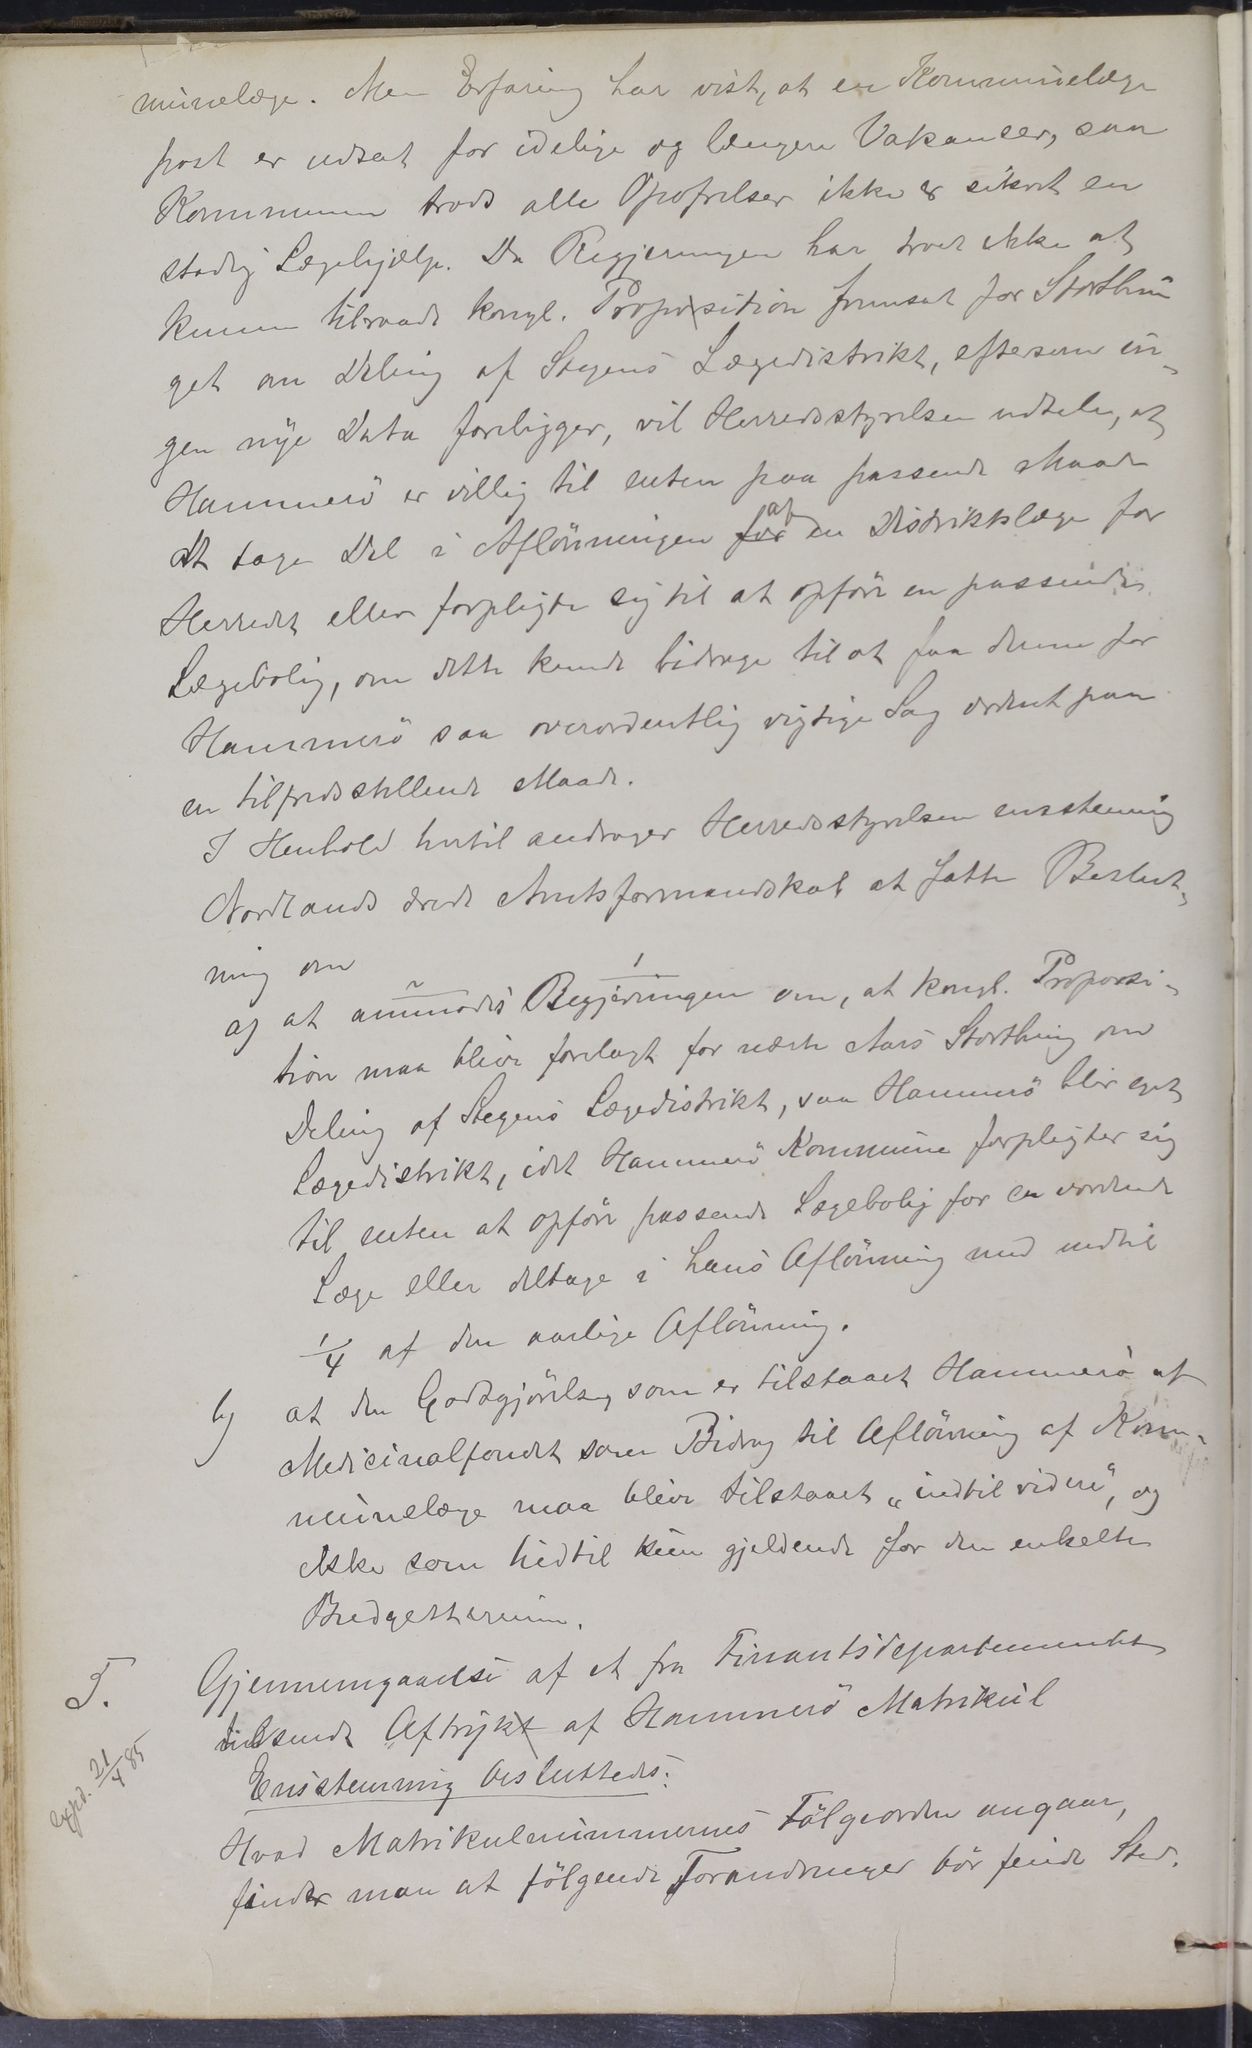 munelæge. Men Erfaring har vist, at en Kommunelæge
post er udsat for idelige og længere Vakancer, saa
Kommunen trods alle Opofrelser ikke er sikret en
stadig Lægehjælp. Da Regjeringen har troet ikke at
kunne tilraade kongl. Proposition fremsat for Storthin
get om Deling af Stegens Lægedistrikt, eftersom in-
gen nye Data foreligger, vil Herredsstyrelsen udtale, at
Hammerö er villig til enten paa passende Maade
at tage Del i Aflönningen for af en Distriktslæge for
Herredet eller forpligte sig til at opföre en passende
Lægebolig, om dette kunde bidrage til at faa denne for
Hammerö saa overordentlig vigtige Sag ordnet paa
en tilfredsstillende Maade.
I Henhold hertil andrager Herredsstyrelsen enstemmig
Nordlands ærede Amtsformandskab at fatte Beslut-
ning om
a) at anmode Regjeringen om, at kongl. Proposi-
tion maa blive forelagt for næste Aars Storthing om
Deling af Stegens Lægedistrikt, saa Hammerö blir eget
Lægedistrikt, idet Hammerö Kommune forpligter sig
til enten at opföre passende Lægebolig for en vordende
Læge eller deltage i hans Aflönning med indtil
1/4 af den aarlige Aflönning.
b) at den Godtgjörelse, som er tilstaaet Hammerö af
Medicinalfondet som Bidrag til Aflönning af Kom-
munelæge maa blive tilstaaet „indtil videre", og
ikke som hidtil kun gjeldende for den enkelte
Budgettermin.
5. Gjennemgaaelse af et fra Finantsdepartementet
tilsendt Aftrykt af Hammerö Matrikul
Enstemmig besluttedes:
expd. 21/4 85
Hvad Matrikulnummernes Fölgeorden angaar,
finder man at fölgende Forandringer bör finde Sted.